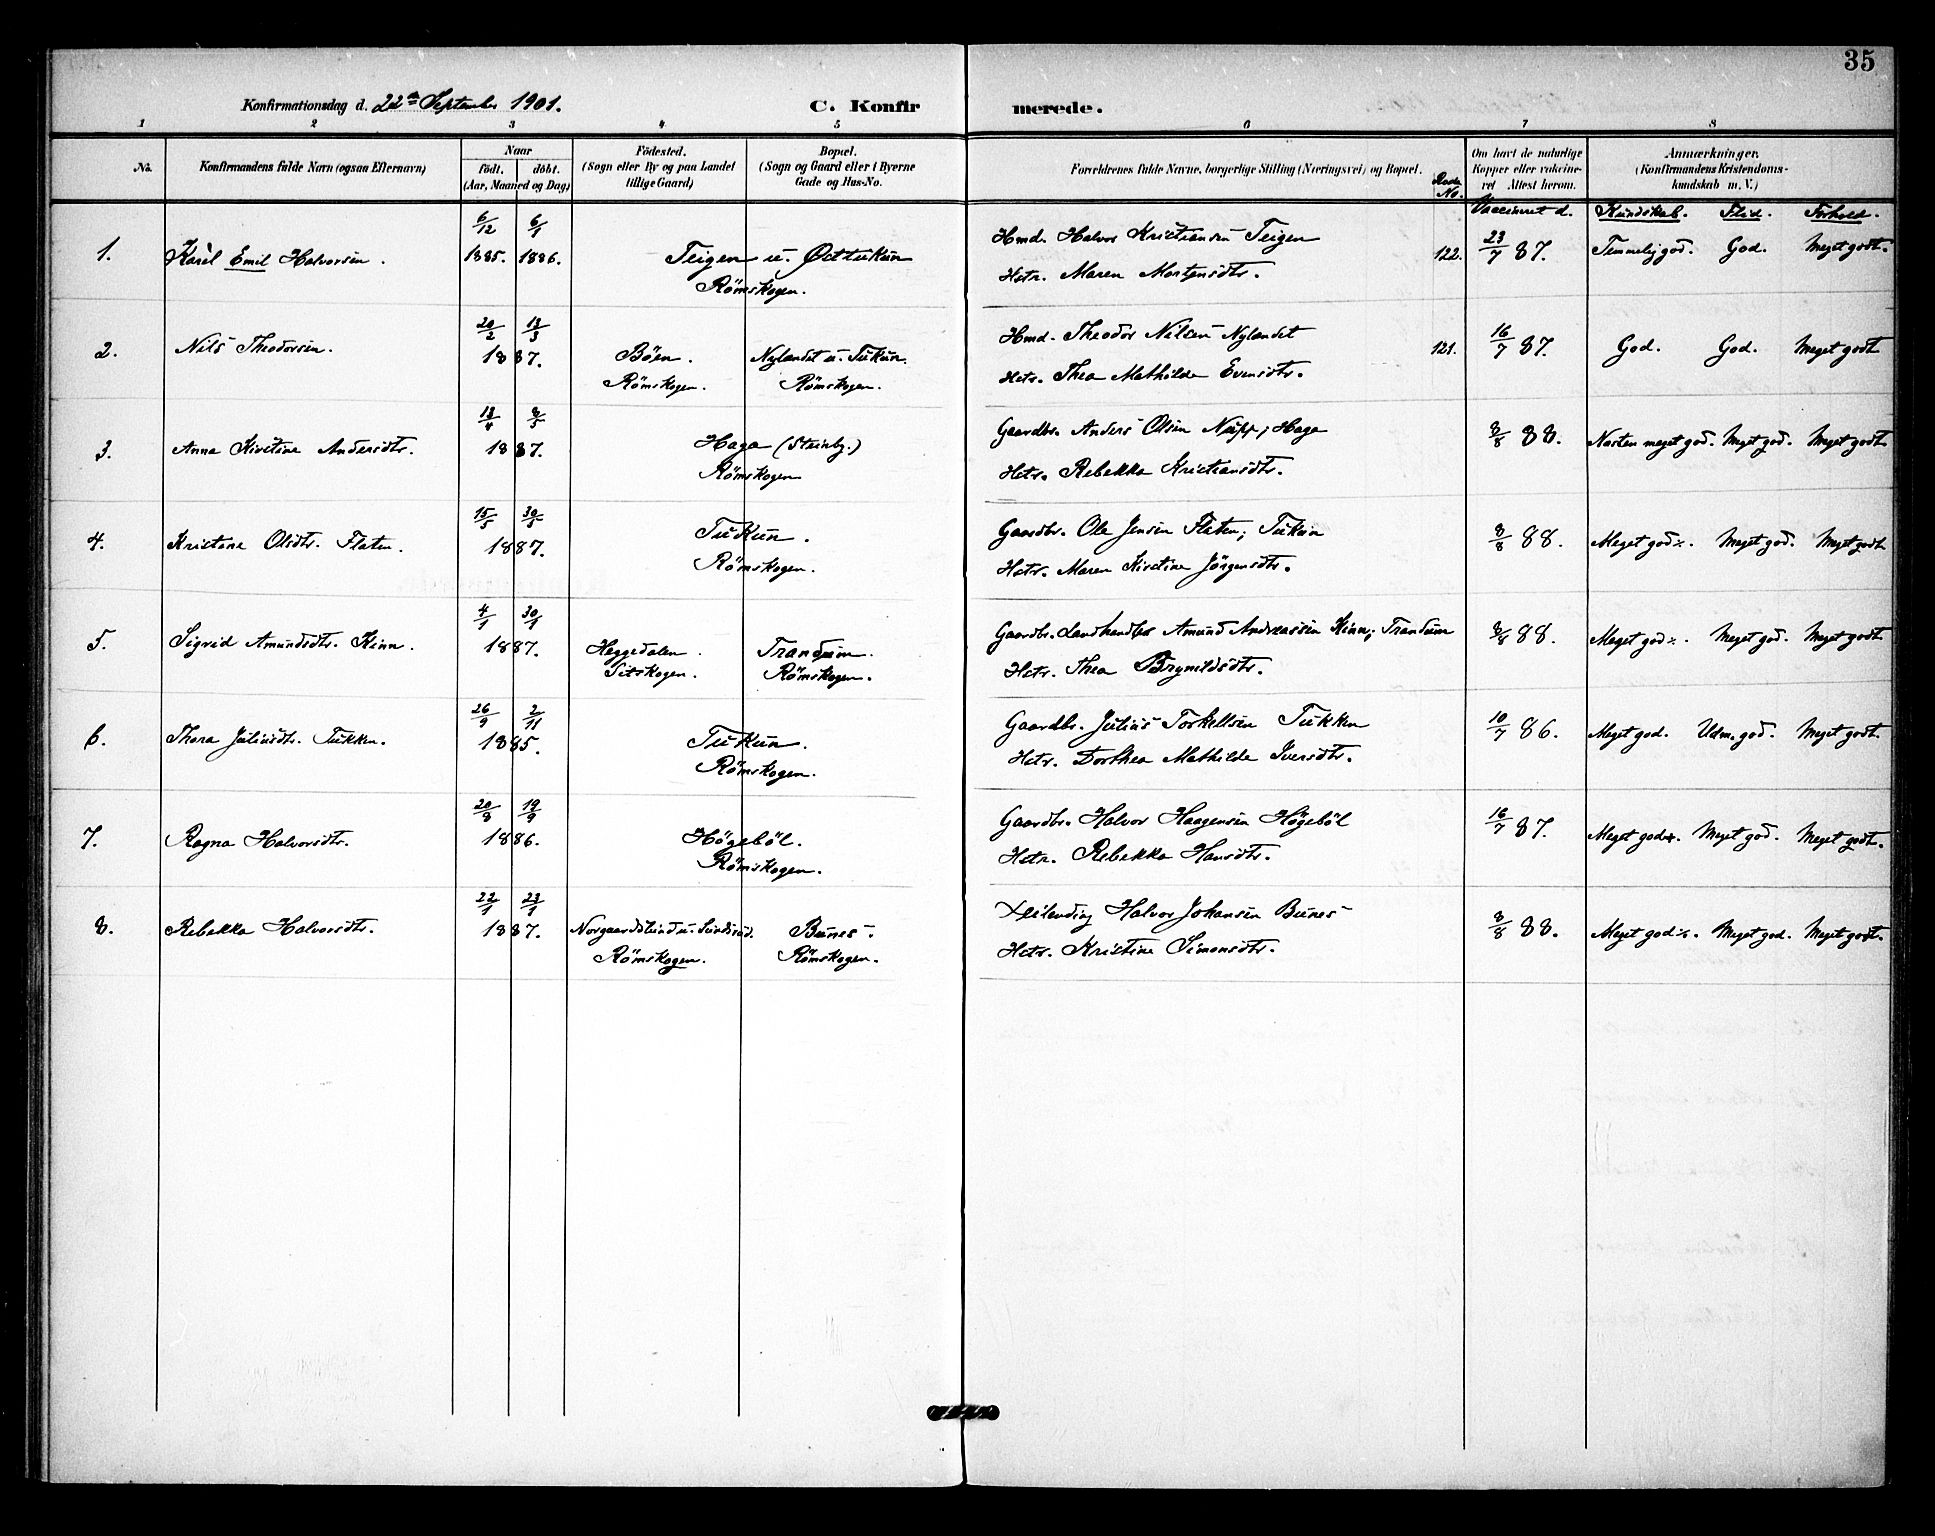 35
Konfirmationsdag d. 22de September 1901. C. Konfirmerede.
1 2 3 4 5 6 7 8
No. Konfirmandens fulde Navn (ogsaa Efternavn) Naar födt. döbt. (Aar, Maaned og Dag) Födested. (Sogn eller By og paa Landet tillige Gaard) Bopæl. (Sogn og Gaard eller i Byerne Gade og Hus-No. Forældrenes fulde Navne, borgerlige Stilling (Næringsvei) og Bopæl. Om havt de naturlige Kopper eller vakcineret Attest herom. Anmærkninger. (Konfirmandens Kristendomskundskab m. V.)
No. Vaccineret d. Kundskab. Flid. Forhold.
6/12 6/1
1. Karel Emil Halvorsen. 1885. 1886. Teigen u. Östtukun Hmd. Halvor Kristiansen Teigen 122. 23/7 87. Temmelig god. God. Meget godt.
Römskogen. Hstr. Maren Mortensdtr.
20/2 13/3
2. Nils Theodorsen. 1887. Böen. Nylandet u. Tukun. Hmd. Theodor Nilsen Nylandet 121. 16/7 87. God. God. Meget godt
Römskogen. Römskogen. Hstr. Thea Mathilde Evensdtr.
13/4 8/5
3. Anna Kirstine Andersdtr. 1887. Haga (Steinbg.) Gaardbr. Anders Olsen Haga 8/8 88. Næsten meget god. Meget god. Meget godt
Römskogen Hstr. Rebekka Kristiansdtr.
15/5 30/5
4. Kristane Olsdtr. Flaten. 1887. Tukun. Gaardbr. Ole Jensen Flaten, Tukun 8/8 88. Meget god ÷. Meget god. Meget godt
Römskogen. Hstr. Maren Kirstine Jörgensdtr.
4/1 30/1
5. Sigrid Amundsdtr. Kinn. 1887. Heggedalen. Trandum. Gaardbr. Landhandler Amund Andreassen Kinn, Trandum 8/8 88. Meget god ÷. Meget god. Meget godt
Setskogen. Römskogen. Hstr. Thea Brynildsdtr.
26/9 2/11
6. Thora Juliusdtr. Tukken. 1885. Tukun. Gaardbr. Julius Torkelsen Tukken 10/7 86. Meget god. Udm. god. Meget godt.
Römskogen. Hstr. Dorthea Mathilde Iversdtr.
20/8 19/9
7. Ragna Halvorsdtr. 1886. Högeböl. Gaardbr. Halvor Haagensen Högeböl 16/7 87. Meget god +. Meget god. Meget godt.
Römskogen. Hstr. Rebekka Hansdtr.
22/1 23/1
8. Rebekka Halvorsdtr. 1887. Bunes. Leilending Halvor Johansen Bunes 8/8 88. Meget god ÷. Meget god. Meget godt.
Römskogen. Römskogen. Hstr. Kristine Simonsdtr.